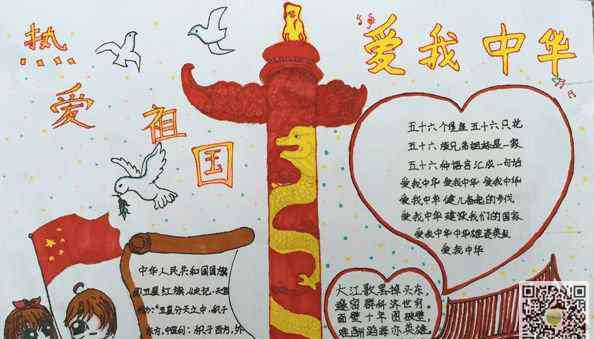 热
爱
祖
国
爱我中华
五十六个星座 五十六只花
五十六 族兄弟姐妹是一家
五十六种语言汇成一句话
爱我中华 爱我中华 爱我中华
爱我中华 健儿奋起的步伐
爱我中华 建设我们的国家
爱我中华 中华雄姿英发
爱我中华
大江歌罢掉头东，
邃密群科济世穷。
面壁十年图破壁，
难酬蹈海亦英雄
中华人民共和国国旗
五星红旗，
"五星分天之中，积于
东方，中国利；积于西方，外